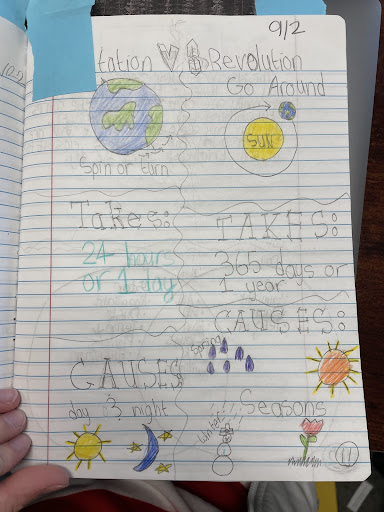 9/2
tation Revolution
Go Around
SUN
Spin or turn
Takes:
24 hours
or 1 day
TAKES:
365 days or
1 year
CAUSES:
Spring
CAUSES
day & night
Seasons
winter
11